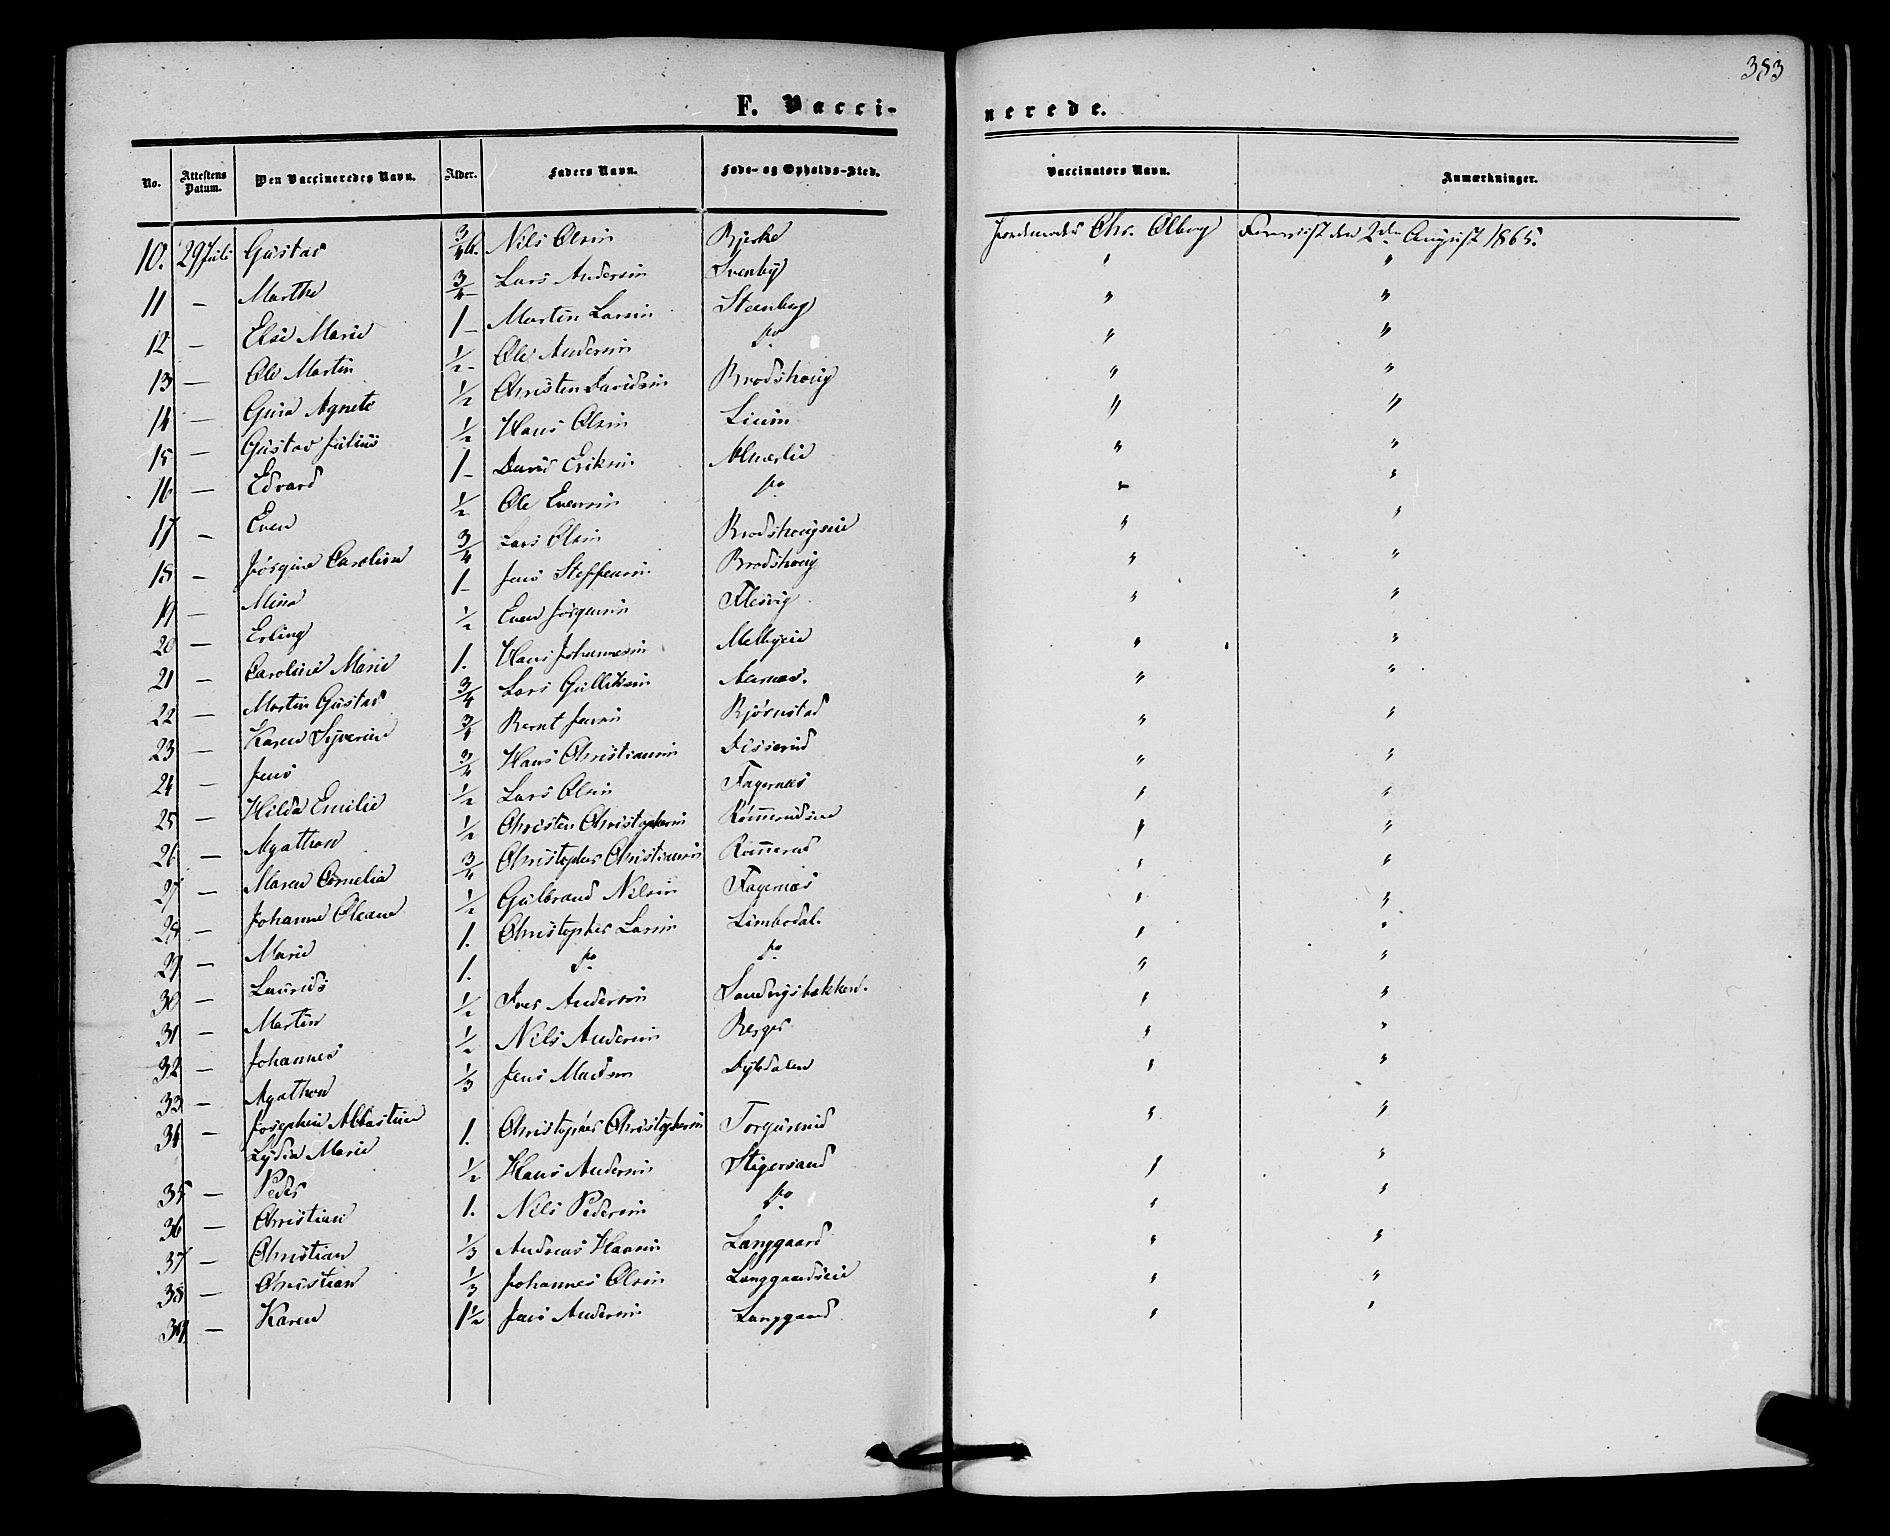 383
F. Vaccinerede.
No. Attestens Datum. Den Vaccineredes Navn. Alder. Faders Navn. Føde- og Opholds-Sted. Vaccinatørs Navn. Anmærkninger.
10. 29 Juli Gustav 3/4 Nils Olsen Bjerke Chr. Olberg Forevist den 2den August 1865.
11 — Marthe 3/4 Lars Andersen Svenby " "
12 — Else Marie 1 Martin Larsen Steenberg " "
13 — Ole Martin 1/2 Ole Andersen do " "
14 — Agnete 1/2 Christen Davidsen Brodshoug " "
15 — Gustav Julius 1/2 Hans Olsen " "
16 — Edvard 1 David Eriksen Almerlie " "
17 — Even 1/2 Ole Evensen do " "
18 — Jørgine Caroline 3/4 Lars Olsen Brodshougeie " "
19 — Mina 1 Jens Steffensen Brodshoug " "
20 — Erling 1/2 Even Jørgensen Flesvig " "
21 — Caroline Marie 1. Hans Johannesen Melbyeie " "
22 — Martin Gustav 3/4 Lars Gulliksen " "
23 — Karen Syverine 3/4 Bernt Jensen Bjørnstad " "
24 — Jens 3/4 Hans Christiansen " "
25 — Hilda Emilie 1/2 Lars Olsen Fagernæs " "
26 — Agathon 1/2 Christen Christophersen Rømmerudeie " "
27 — Maren Cornelia 3/4 Christopher Christiansen Rømmerud " "
28 — Johanne Oleane 1/2 Gulbrand Nilsen Fagernæs " "
29 — Marie 1. Christopher Larsen Limbodal. " "
30 — Laurids 1. do do " "
31 — Martin 1/2 Iver Andersen Sandvigsbakken. " "
32 — Johannes 1/2 Nils Andersen Berger " "
33 — Agathon 1/3 Jens Madsen Dybdalen " "
34 — Josephine Albertine 1. Christopher Christophersen Torgunrud " "
Lydia Marie
35 — Peder 1/2 Hans Andersen Stigersand " "
36 — Christian 1. Nils Pedersen do " "
37 — Christian 1/3 Andreas Hansen Langgaard " "
38 — Christian 1/3 Johannes Olsen Langgaardseie " "
39 — Karen 1 1/2 Jens Andersen Langgaard " "